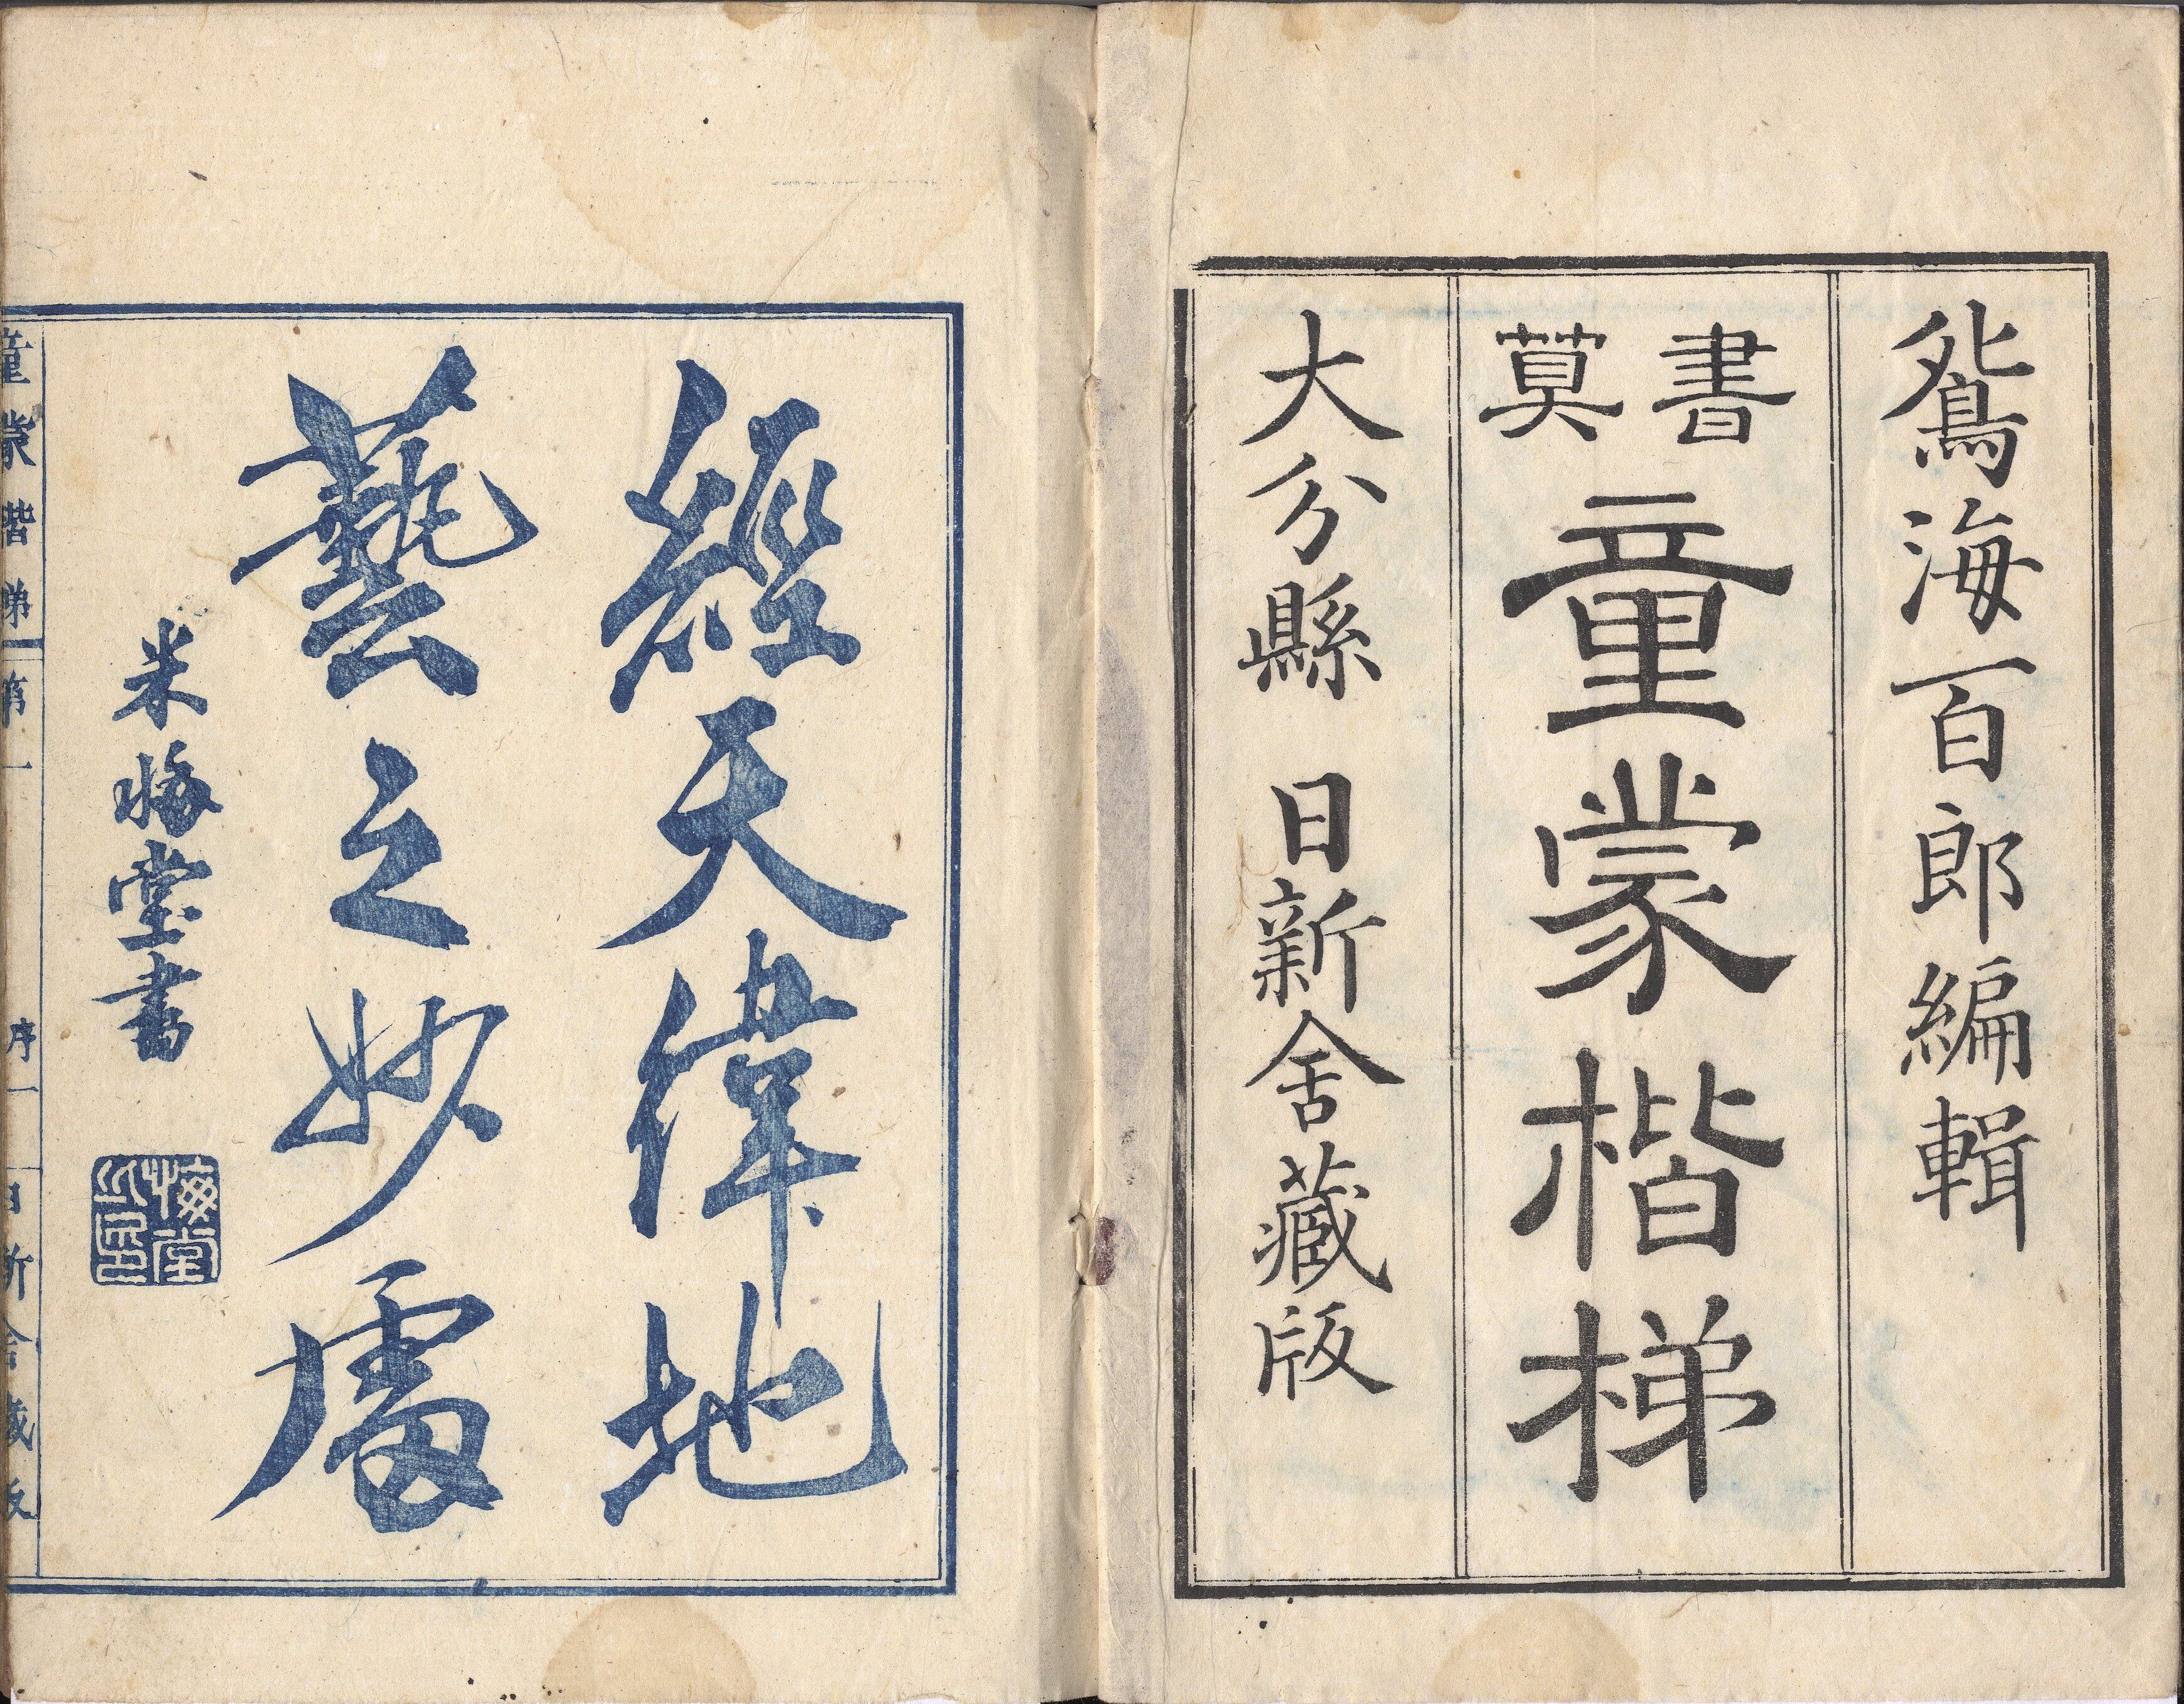 鴛海百郎編輯
書莫
童蒙楷梯
大分縣 日新舍藏版
經天緯地
藝之妙處
米悔堂書
童蒙楷梯 第一 序一 日新舍藏版